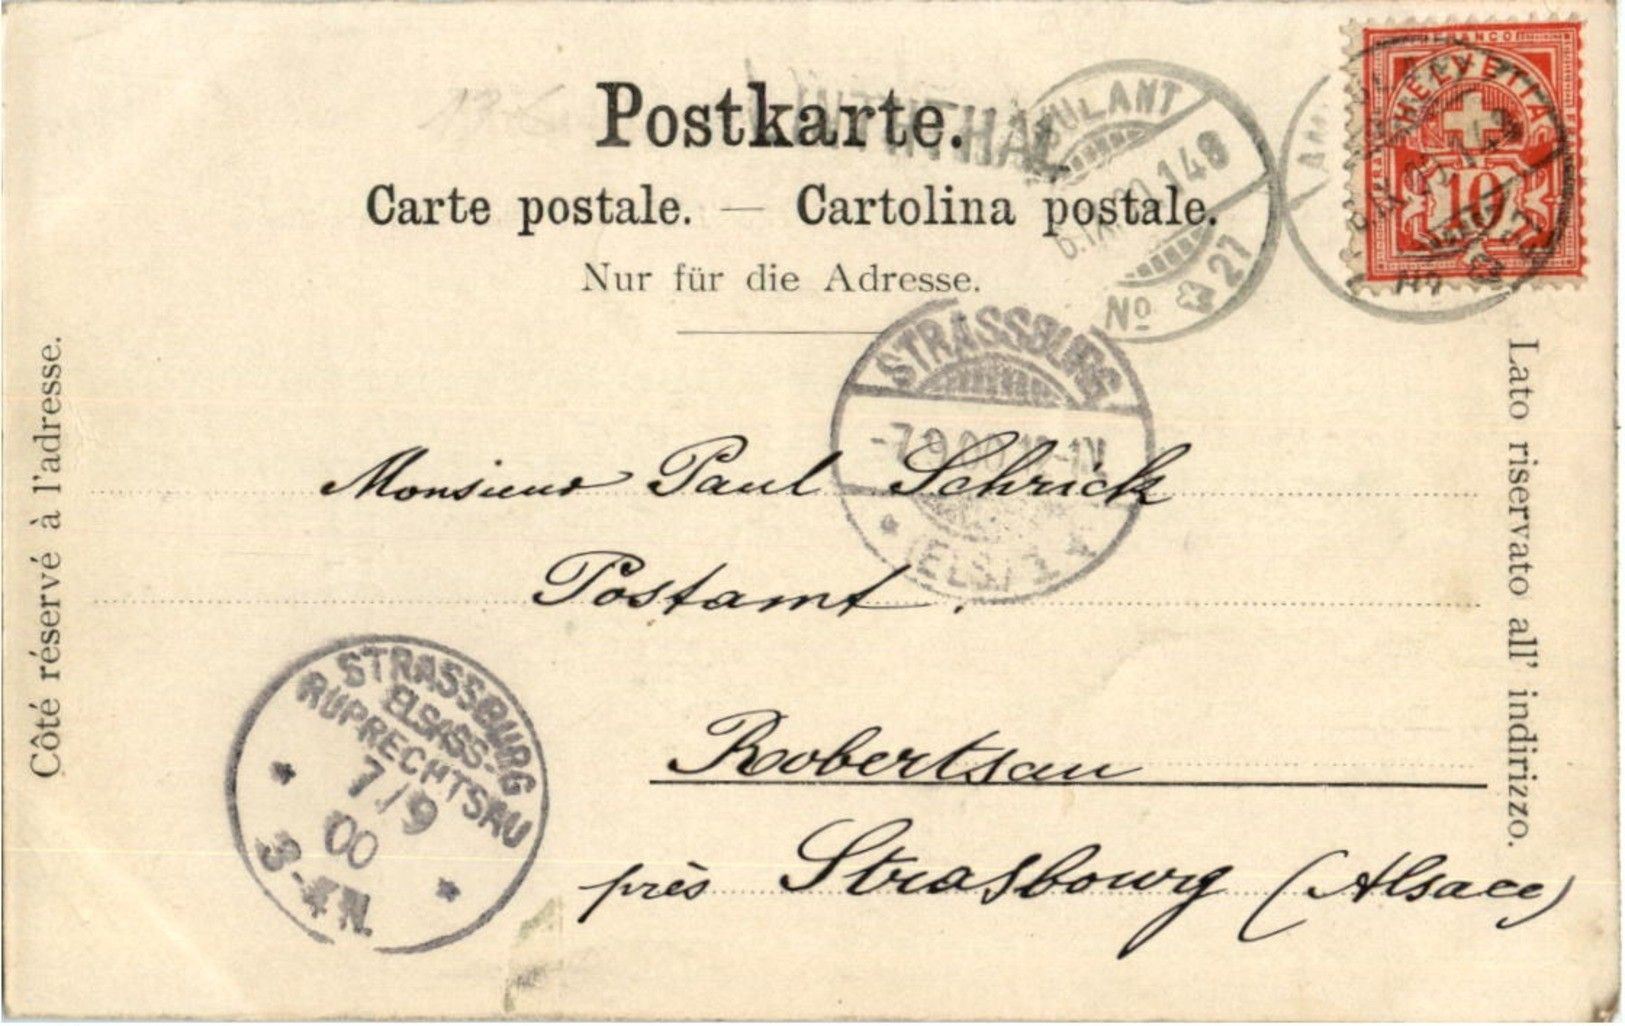 Postkarte.
Carte postale. — Cartolina postale.
Nur für die Adresse.
Côté réservé à l'adresse.
Lato riservato all' indirizzo.
FRANCO
HELVETIA
10
AMBULANT
No 27
STRASSBURG
-7.9.00.12-1N
(ELS.) 1
Monsieur Paul Schrick
Postamt.
Robertsau
près Strasbourg (Alsace)
STRASSBURG
ELSASS-
RUPRECHTSAU
7/9
00
3-4 N.